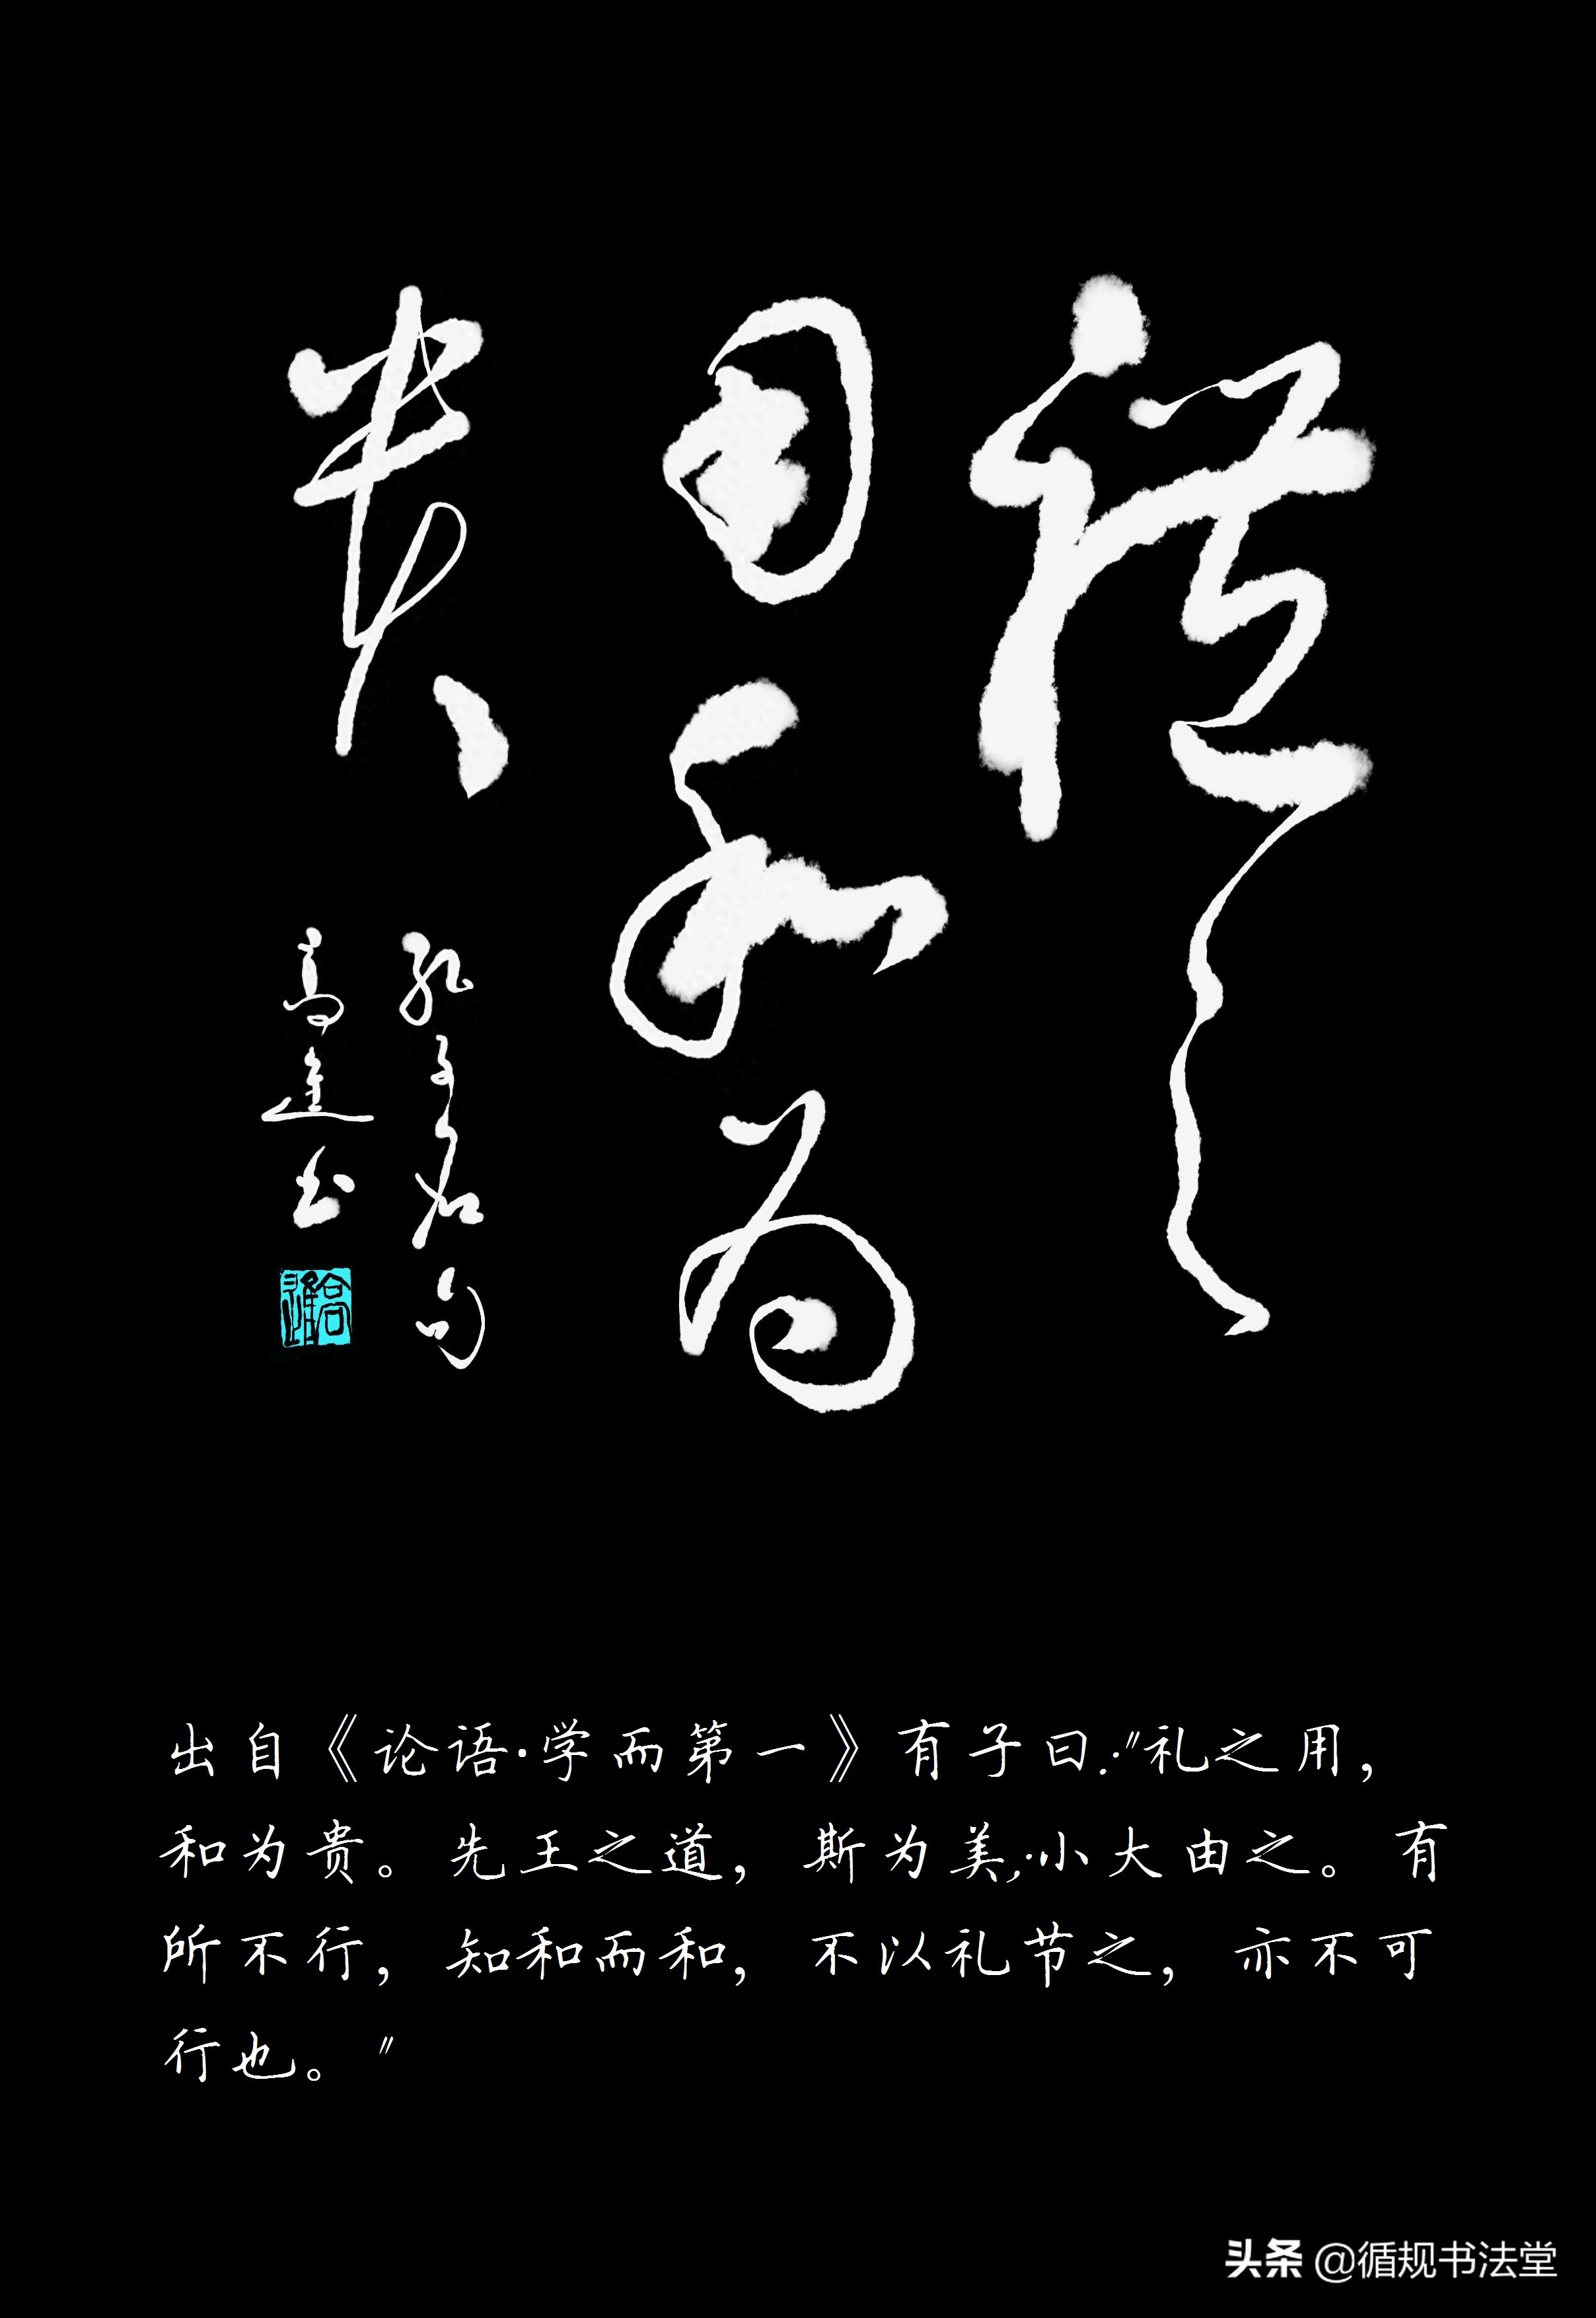 禮之
用和为
贵
孔子名句
高进书
高進
出自《论语·学而第一》有子曰:"礼之用，
和为贵。先王之道，斯为美;小大由之。有
所不行，知和而和，不以礼节之，亦不可
行也。"
头条 @循规书法堂